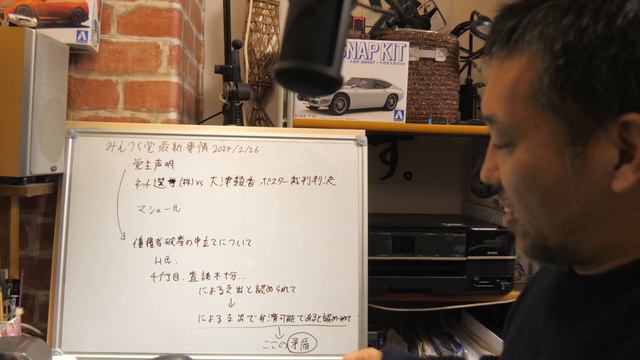 SNAP KIT
みんつく党最新事情 2024/2/26
・党生声明
・ネット選挙(株) vs 大津綾香 ポスター裁判判決
・マシュー氏
債権者破産の申立てについて
H氏.
4行目. 査読不十分...
による支出と認められて
↓
による支出で弁済可能であると認められて
↓
ここの矛盾